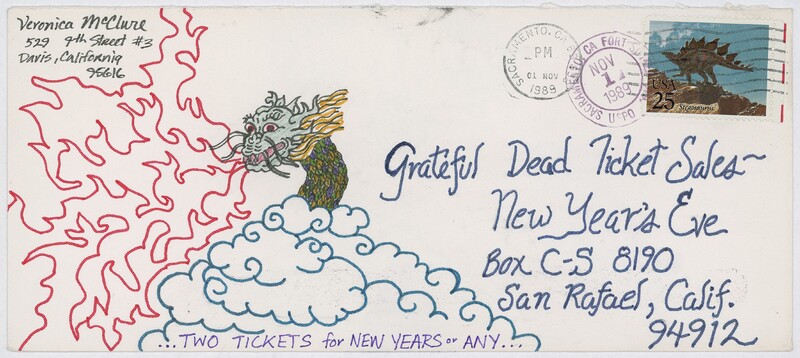 Veronica McClure
529 9th Street #3
Davis, California
95616
SACRAMENTO, CA
PM
01 NOV
1989
SACRAMENTO, CA FORT
NOV
1
1989
USPO
USA
25
Stegosaurus
Grateful Dead Ticket Sales~
New Year's Eve
Box C-S 8190
San Rafael, Calif.
94912
...TWO TICKETS for NEW YEARS or ANY...